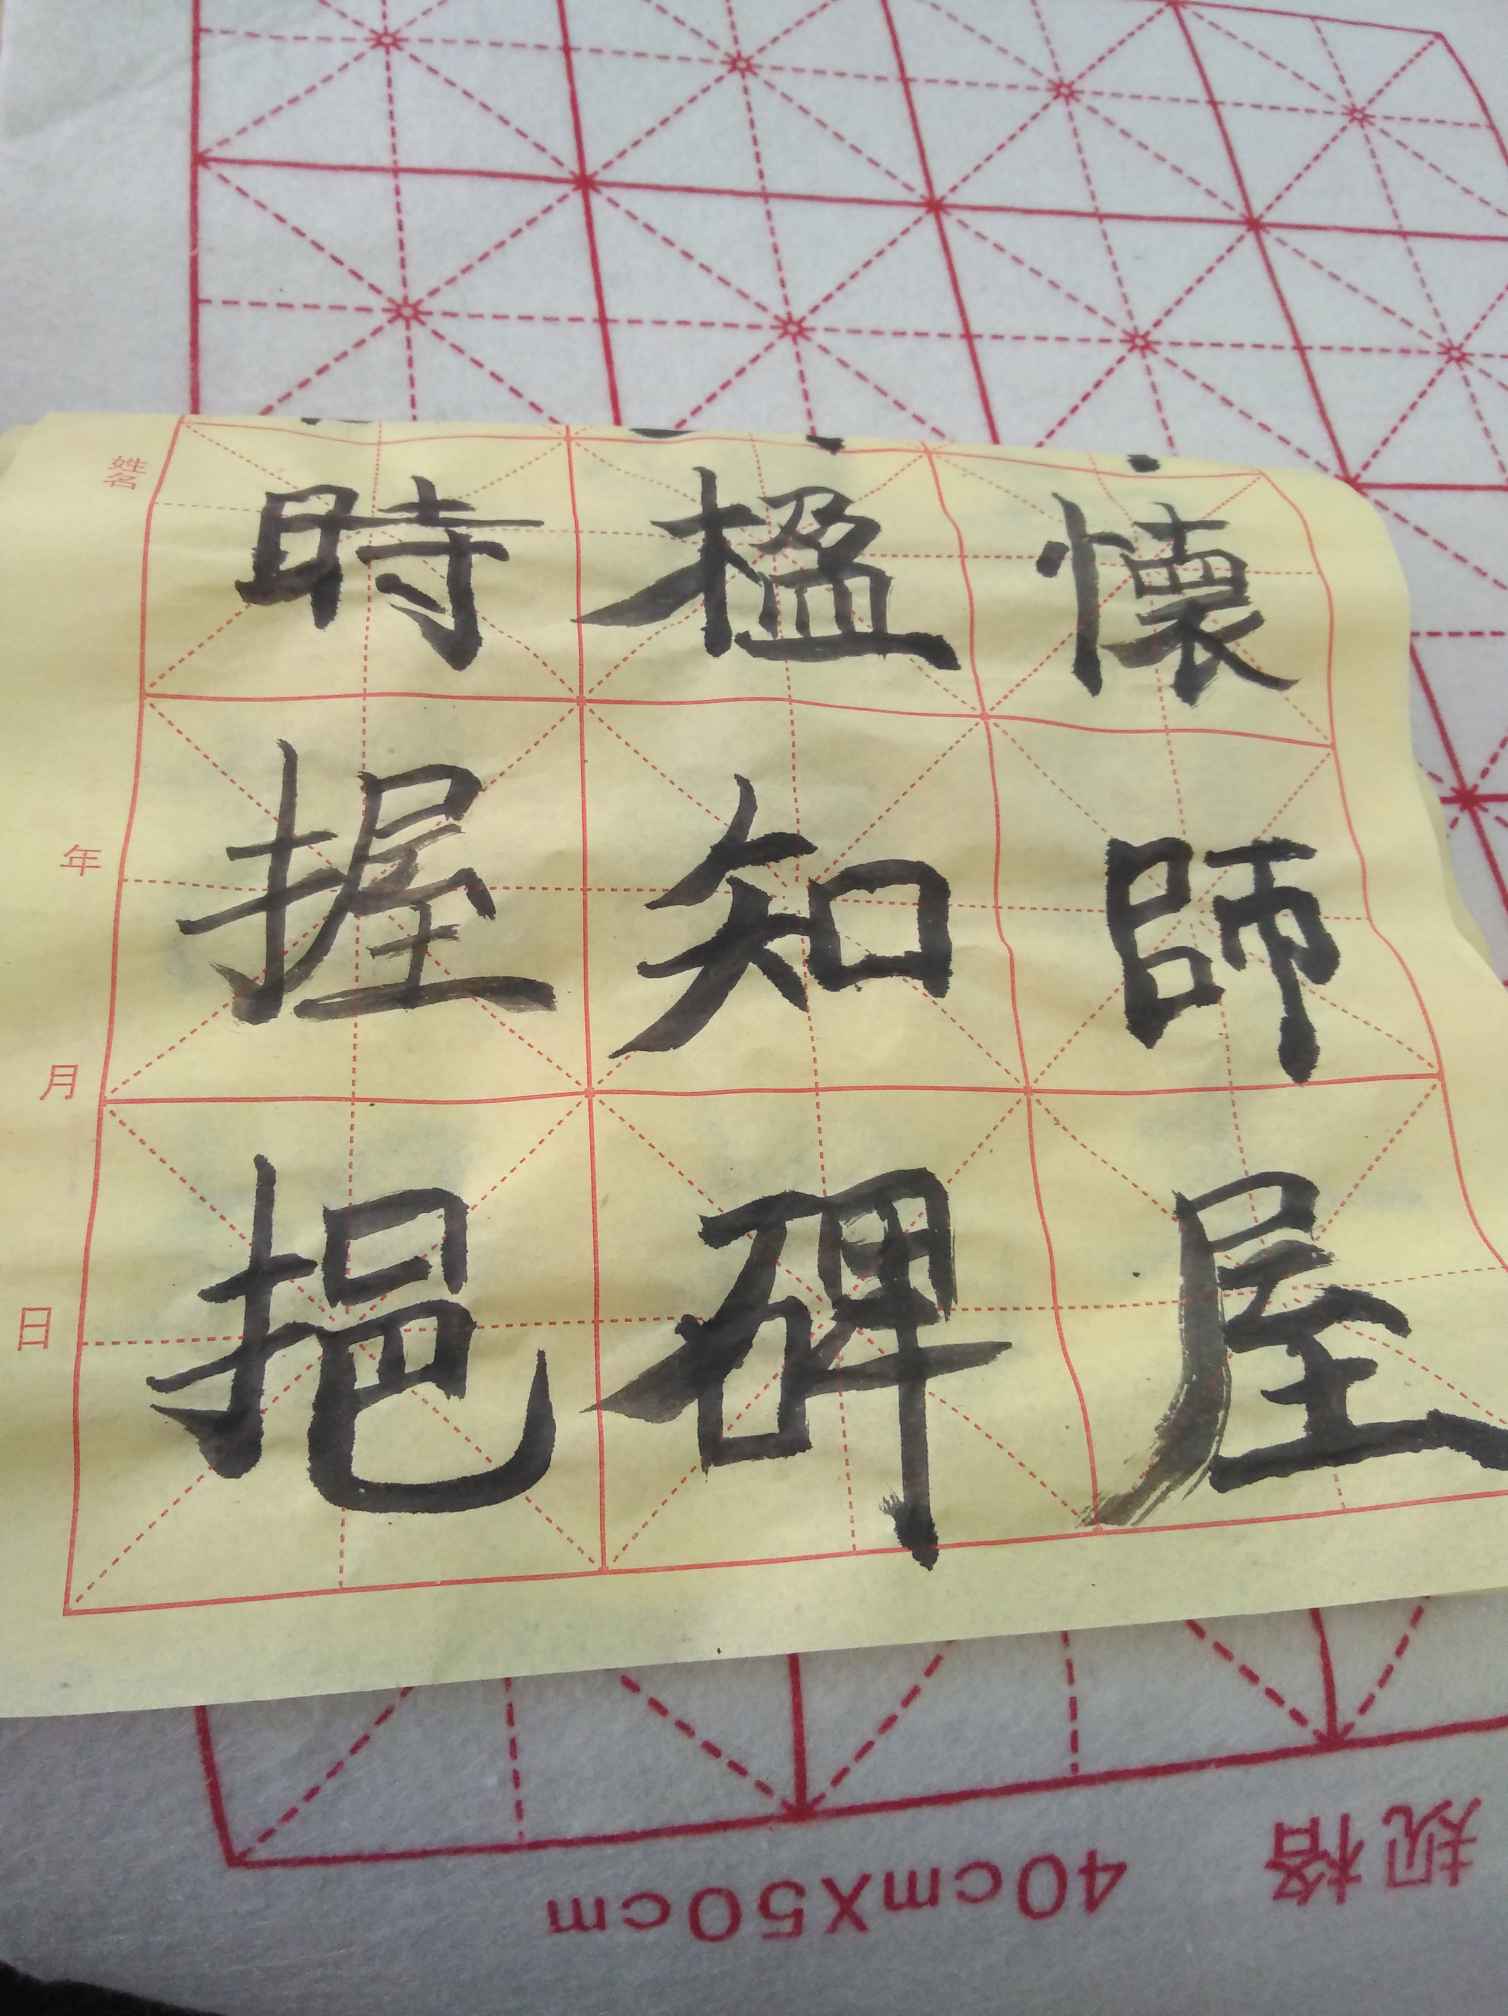 懷師屋
楹知碑
時握挹
姓名
年
月
日
规格 40cmX50cm